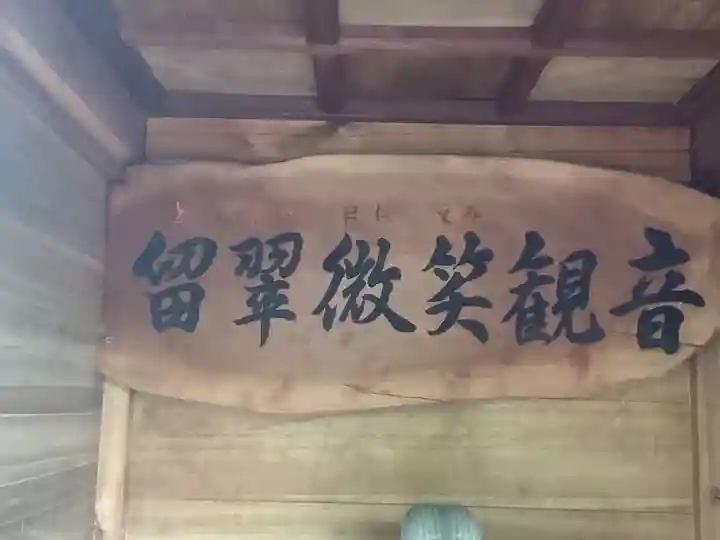 留翠微笑観音